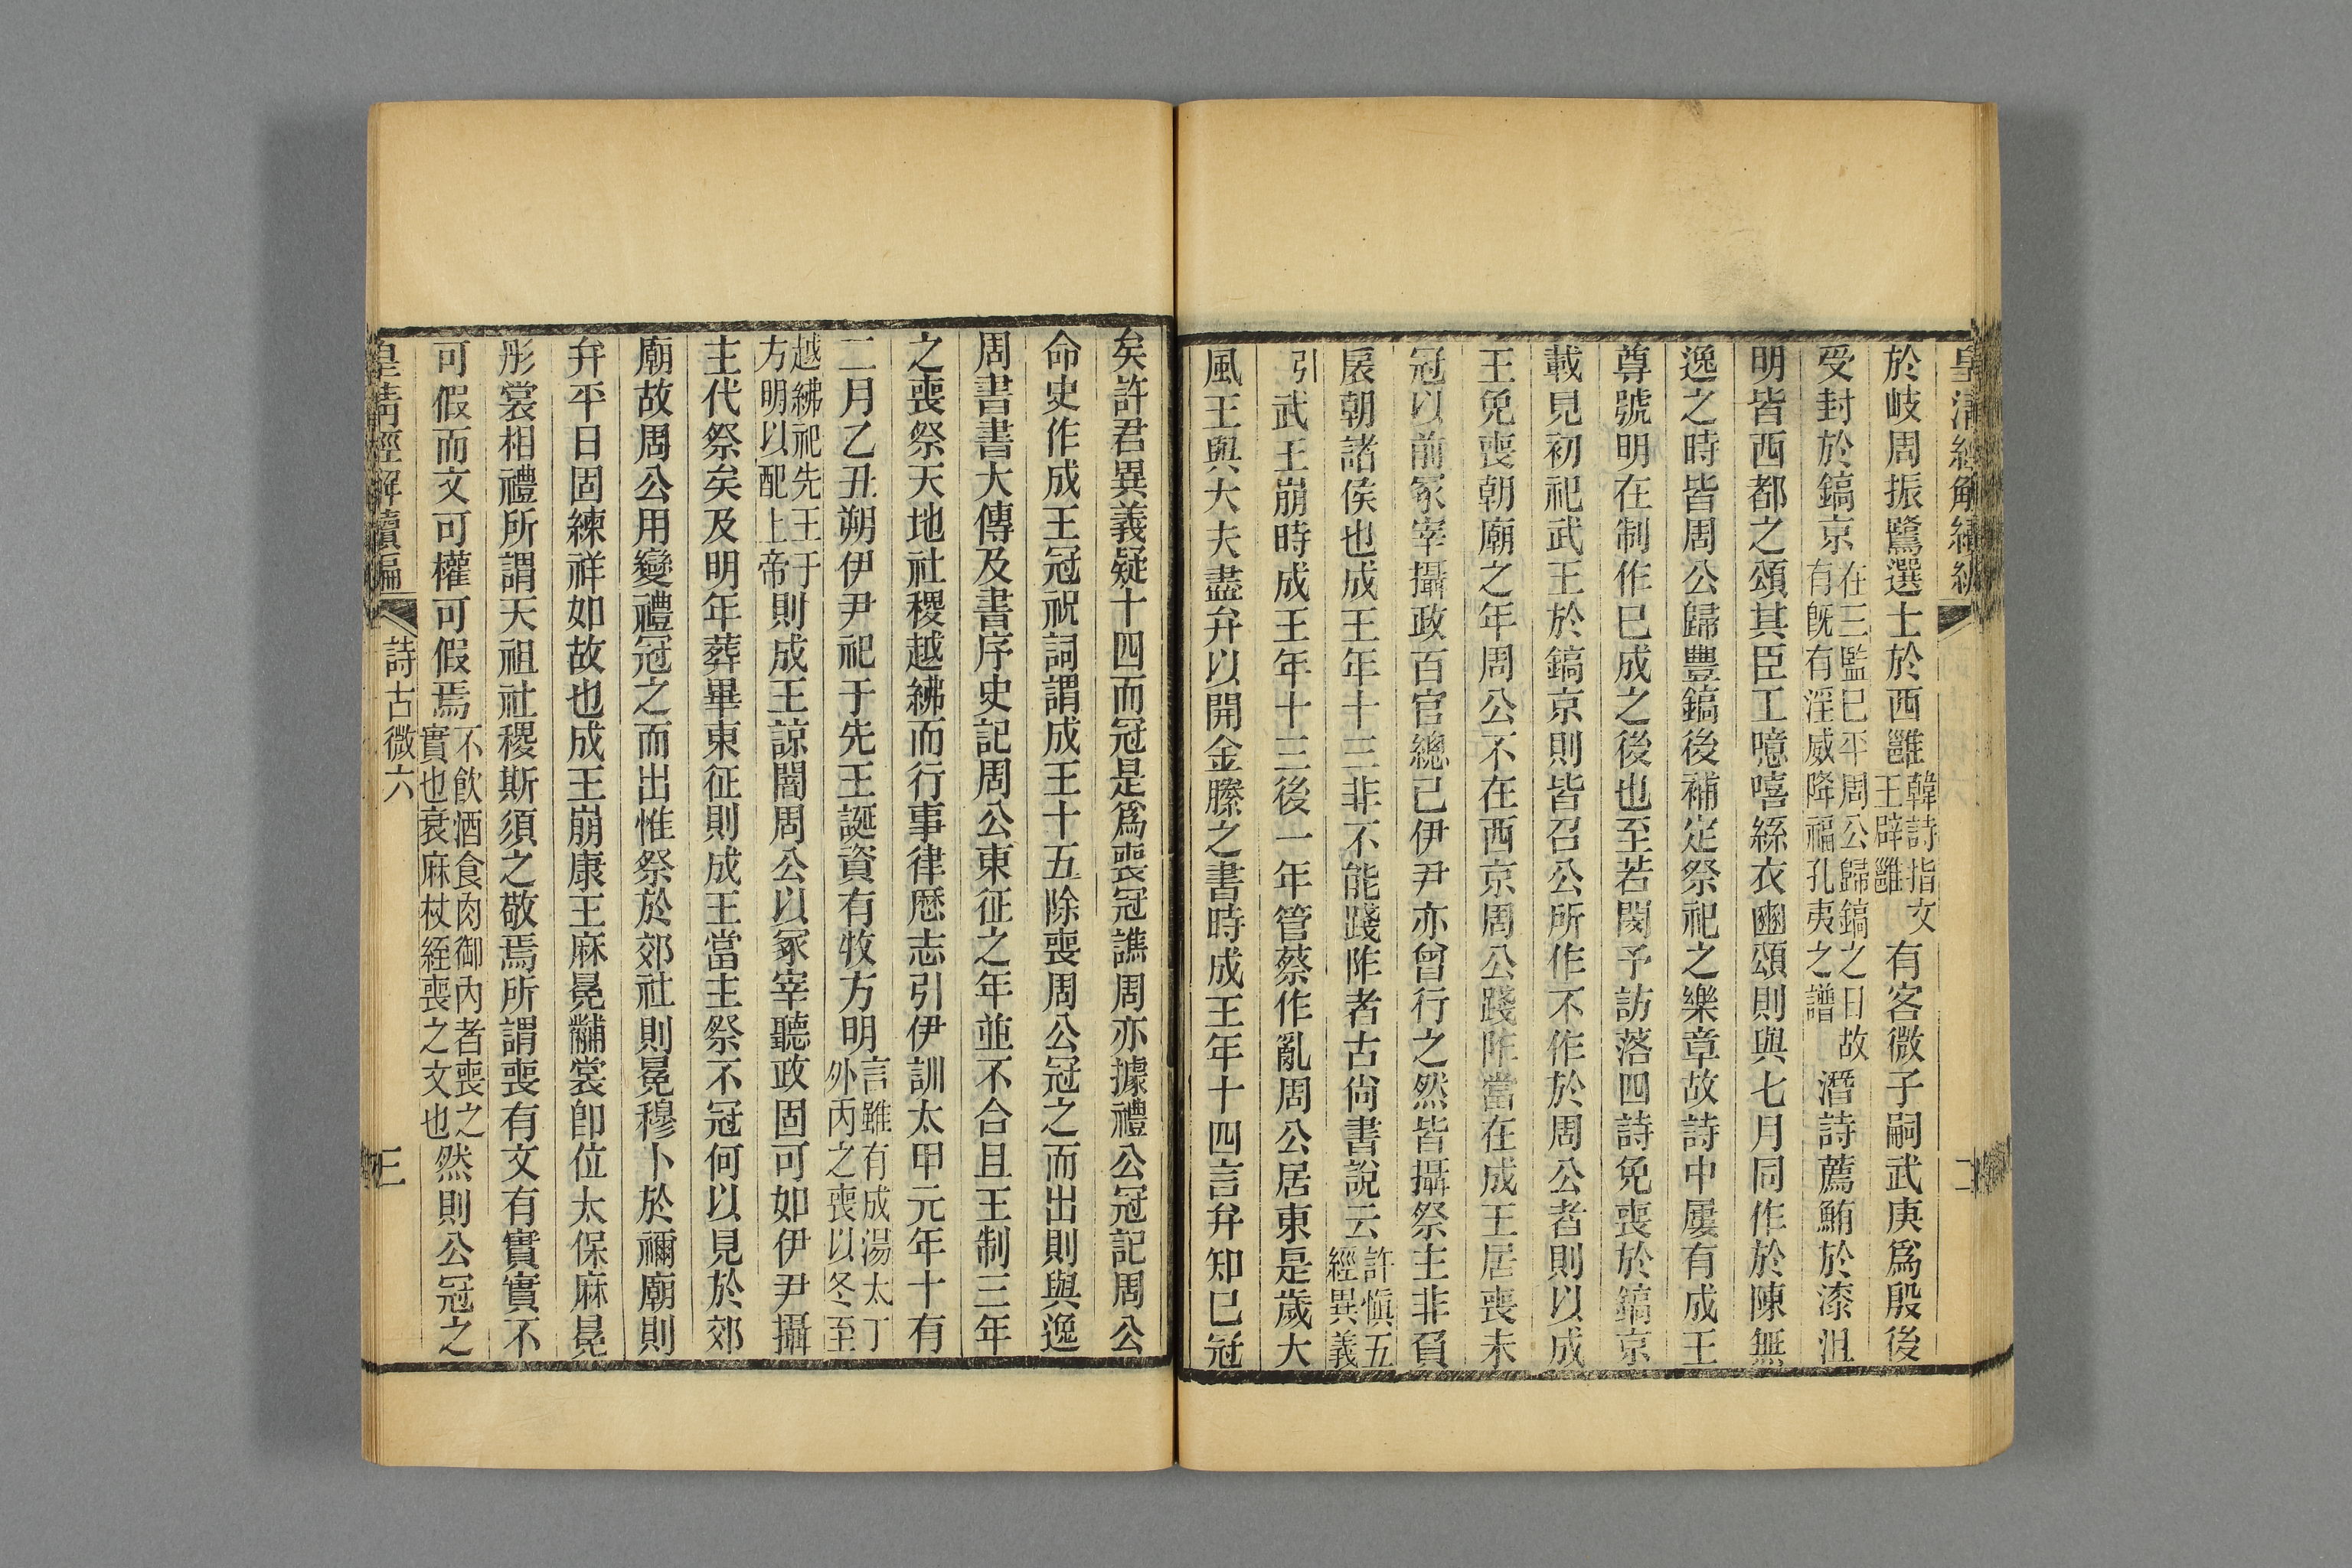 皇清經解續編
二
於岐周振鷺選士於西雝韓詩指文王辟雝有客微子嗣武庚爲殷後
受封於鎬京在三監已平周公歸鎬之日故有旣有淫威降福孔夷之譜潛詩薦鮪於漆沮
明皆西都之頌其臣工噫嘻絲衣豳頌則與七月同作於陳無
逸之時皆周公歸豐鎬後補定祭祀之樂章故詩中屢有成王
尊號明在制作已成之後也至若閔予訪落四詩免喪於鎬京
載見初祀武王於鎬京則皆召公所作不作於周公者則以成
王免喪朝廟之年周公不在西京周公踐阼當在成王居喪未
冠以前冢宰攝政百官總己伊尹亦曾行之然皆攝祭主非負
扆朝諸侯也成王年十三非不能踐阼者古尙書說云許愼五經異義
引武王崩時成王年十三後一年管蔡作亂周公居東是歲大
風王與大夫盡弁以開金縢之書時成王年十四言弁知已冠
矣許君異義疑十四而冠是爲喪冠譙周亦據禮公冠記周公
命史作成王冠祝詞謂成王十五除喪周公冠之而出則與逸
周書書大傳及書序史記周公東征之年並不合且王制三年
之喪祭天地社稷越紼而行事律厯志引伊訓太甲元年十有
二月乙丑朔伊尹祀于先王誕資有牧方明言雖有成湯太丁外丙之喪以冬至
越紼祀先王于方明以配上帝則成王諒闇周公以冢宰聽政固可如伊尹攝
主代祭矣及明年葬畢東征則成王當主祭不冠何以見於郊
廟故周公用變禮冠之而出惟祭於郊社則冕穆卜於禰廟則
弁平日固練祥如故也成王崩康王麻冕黼裳卽位太保麻冕
彤裳相禮所謂天祖社稷斯須之敬焉所謂喪有文有實實不
可假而文可權可假焉不飮酒食肉御內者喪之實也衰麻杖絰喪之文也然則公冠之
皇清經解續編
詩古微六
三